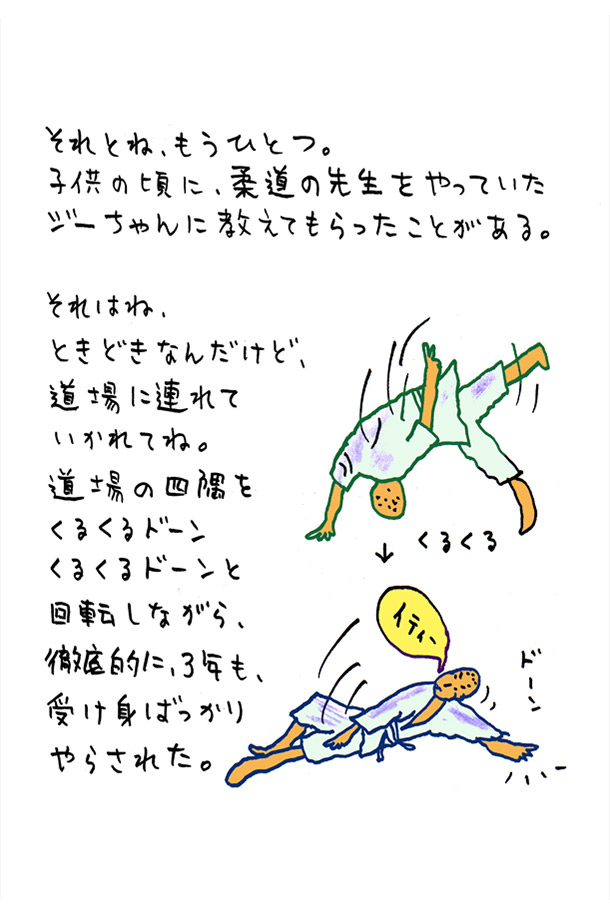 それとね、もうひとつ。
子供の頃に、柔道の先生をやっていた
ジーちゃんに教えてもらったことがある。
それはね、
ときどきなんだけど、
道場に連れて
いかれてね。
道場の四隅を
くるくるドーン
くるくるドーンと
回転しながら、
徹底的に、3年も、
受け身ばっかり
やらされた。
くるくる
イティー
ドーン